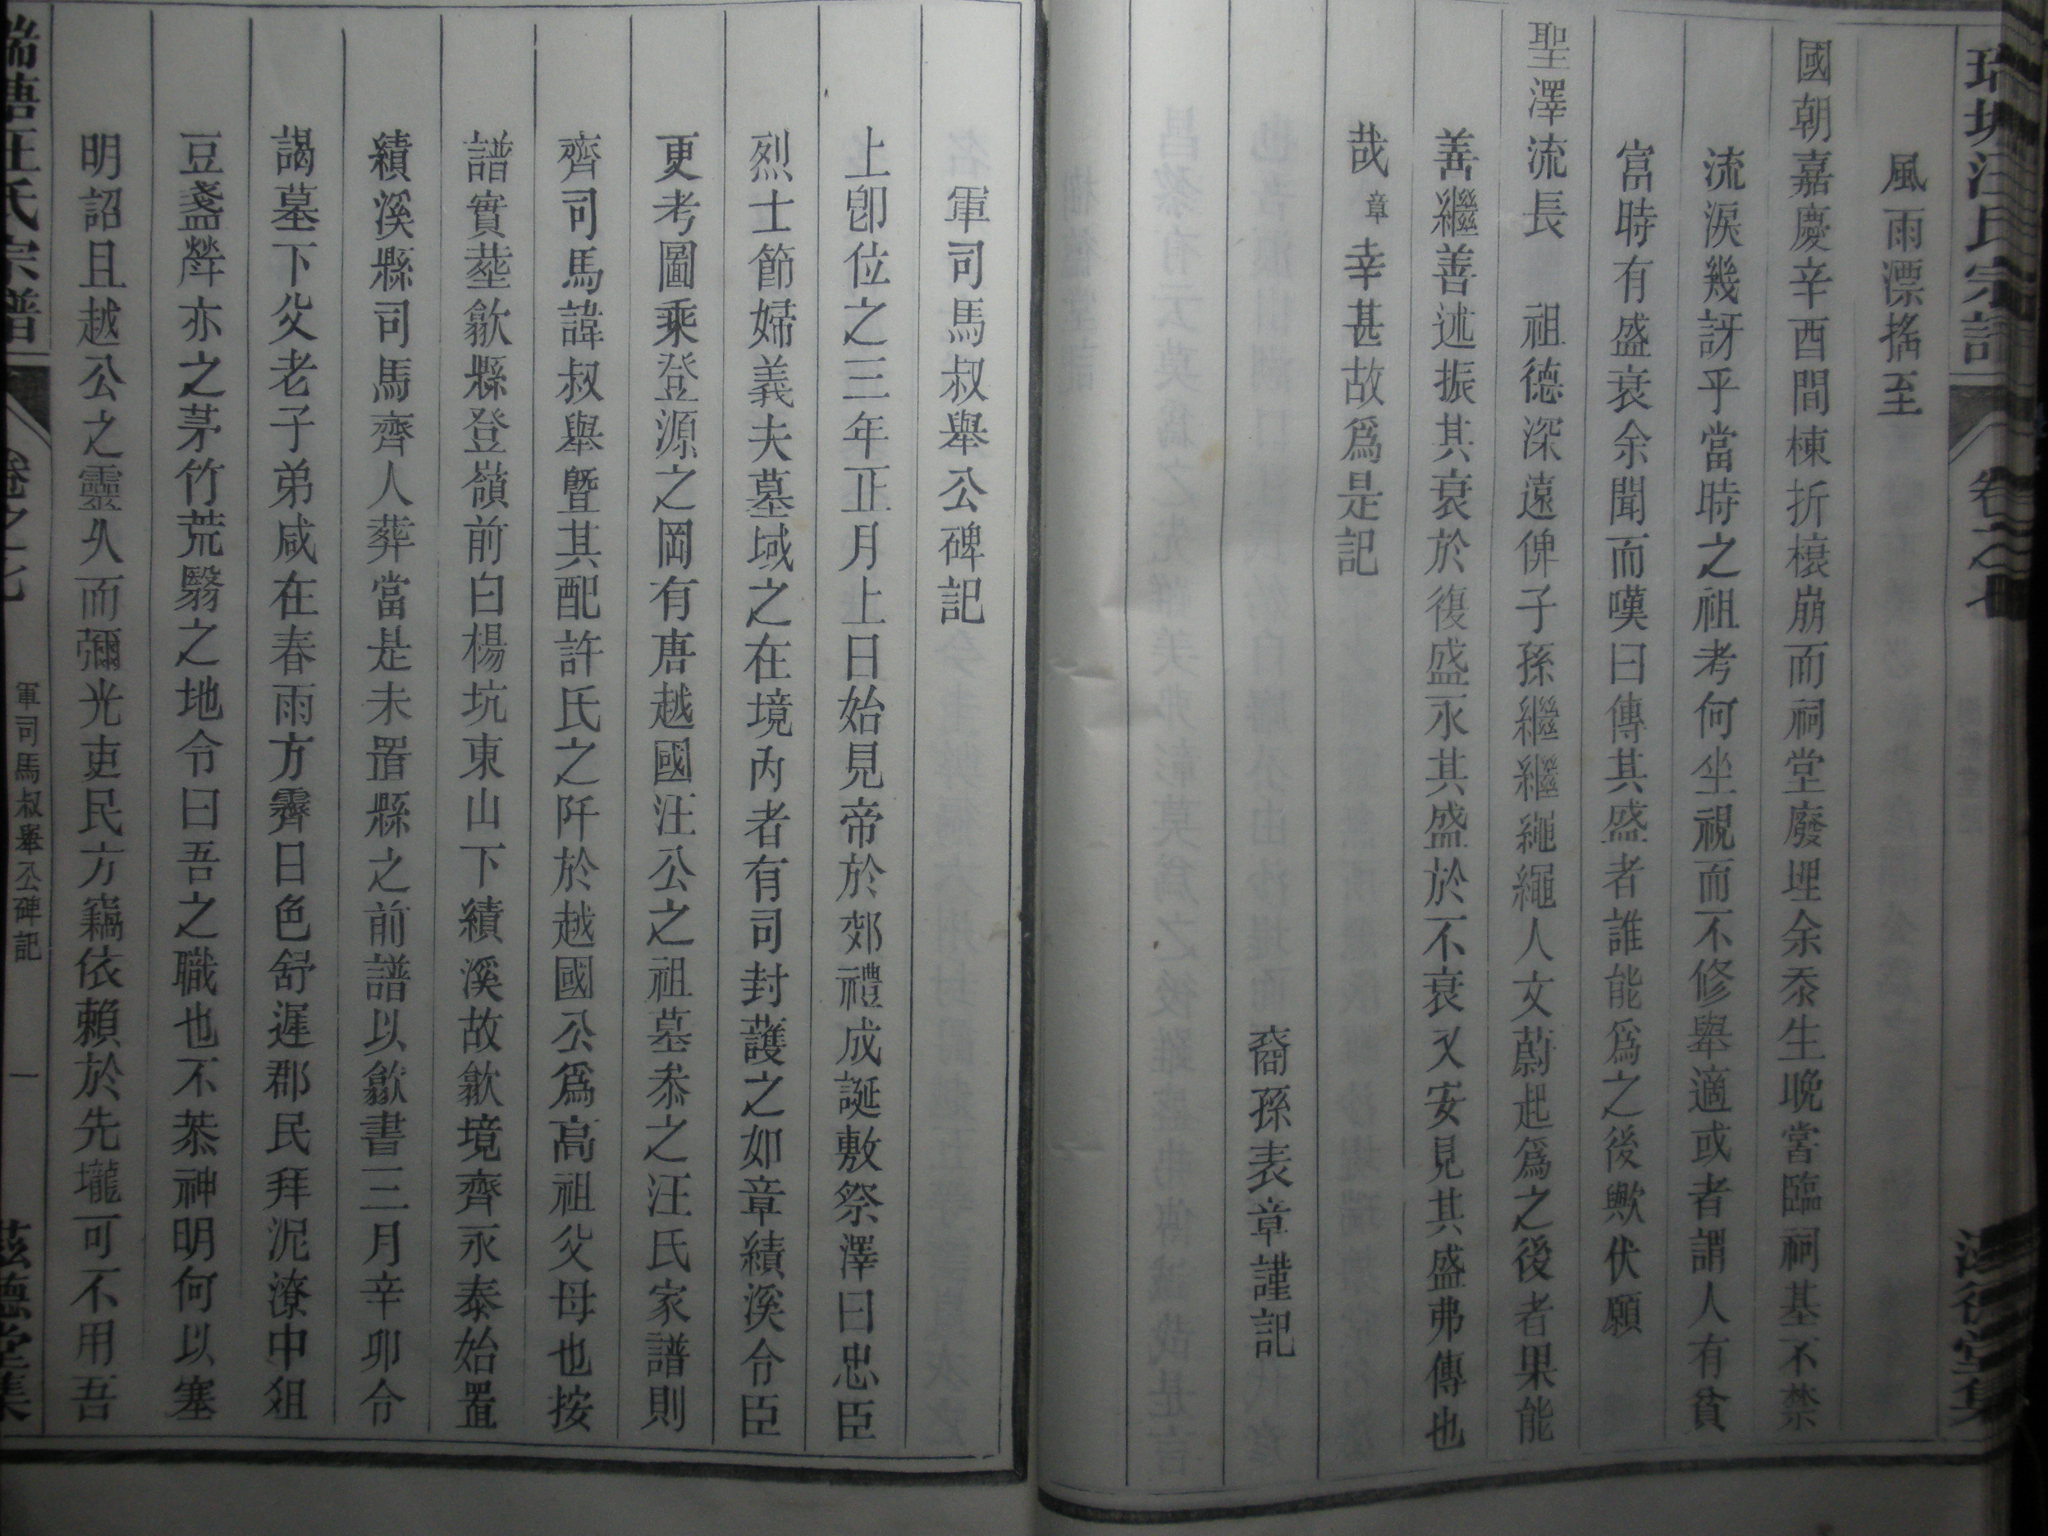 風雨漂搖至
國朝嘉慶辛酉間棟折榱崩而祠堂廢埋余忝生晚當臨祠基不禁
流淚幾訝乎當時之祖考何坐視而不修舉適或者謂人有貧
富時有盛衰余聞而嘆曰傳其盛者誰能爲之後歟伏願
聖澤流長 祖德深遠俾子孫繼繼繩繩人文蔚起爲之後者果能
善繼善述振其衰於復盛永其盛於不衰又安見其盛弗傳也
哉章幸甚故爲是記
裔孫表章謹記
軍司馬叔舉公碑記
上卽位之三年正月上日始見帝於郊禮成誕敷祭澤曰忠臣
烈士節婦義夫墓域之在境內者有司封護之如章績溪令臣
更考圖乘登源之岡有唐越國汪公之祖墓叅之汪氏家譜則
齊司馬諱叔舉暨其配許氏之阡於越國公爲高祖父母也按
譜實塟歙縣登嶺前白楊坑東山下績溪故歙境齊永泰始置
績溪縣司馬齊人葬當是未置縣之前譜以歙書三月辛卯令
謁墓下父老子弟咸在春雨方霽日色舒遲郡民拜泥潦中俎
豆盞斝亦之茅竹荒翳之地令曰吾之職也不恭神明何以塞
明詔且越公之靈久而彌光吏民方竊依賴於先壠可不用吾
瑞塘汪氏宗譜
卷之七
軍司馬叔舉公碑記
一